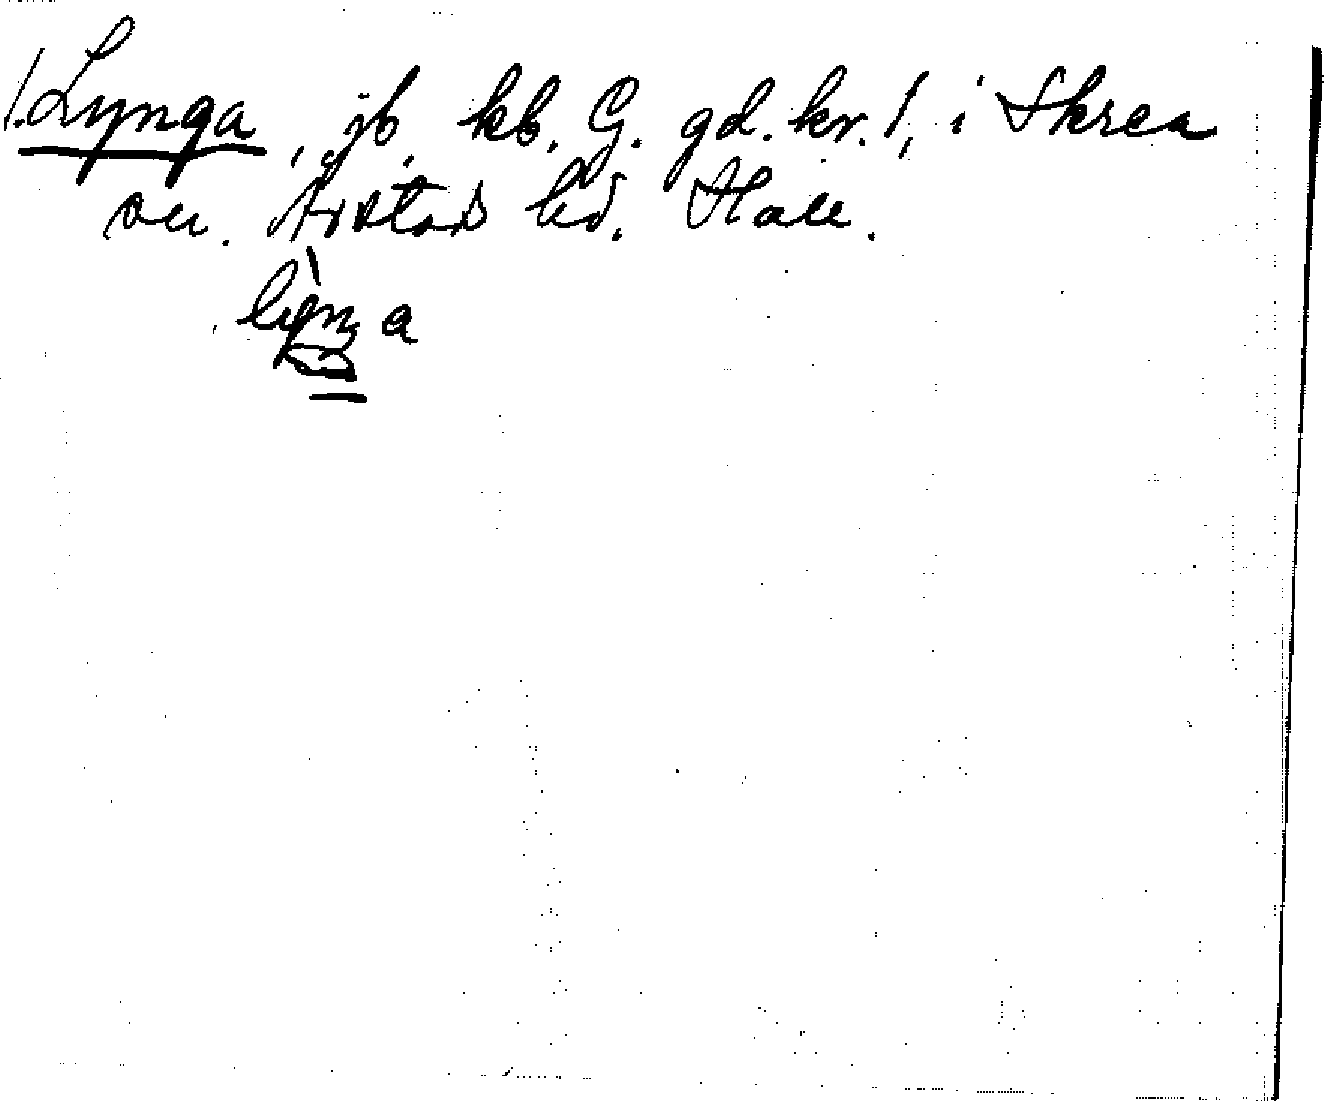 1. Lynga, jb. kb. G. gd. kr. 1, i Skrea
sn. Årstad hd. Hall.